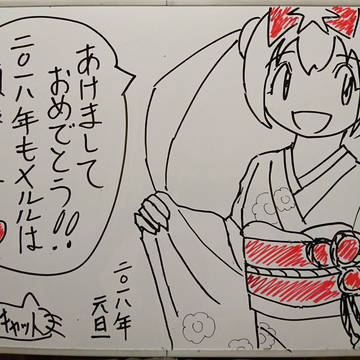 あけまして
おめでとう!!
二〇一八年もメルルは
二〇一八年
元旦
キャット